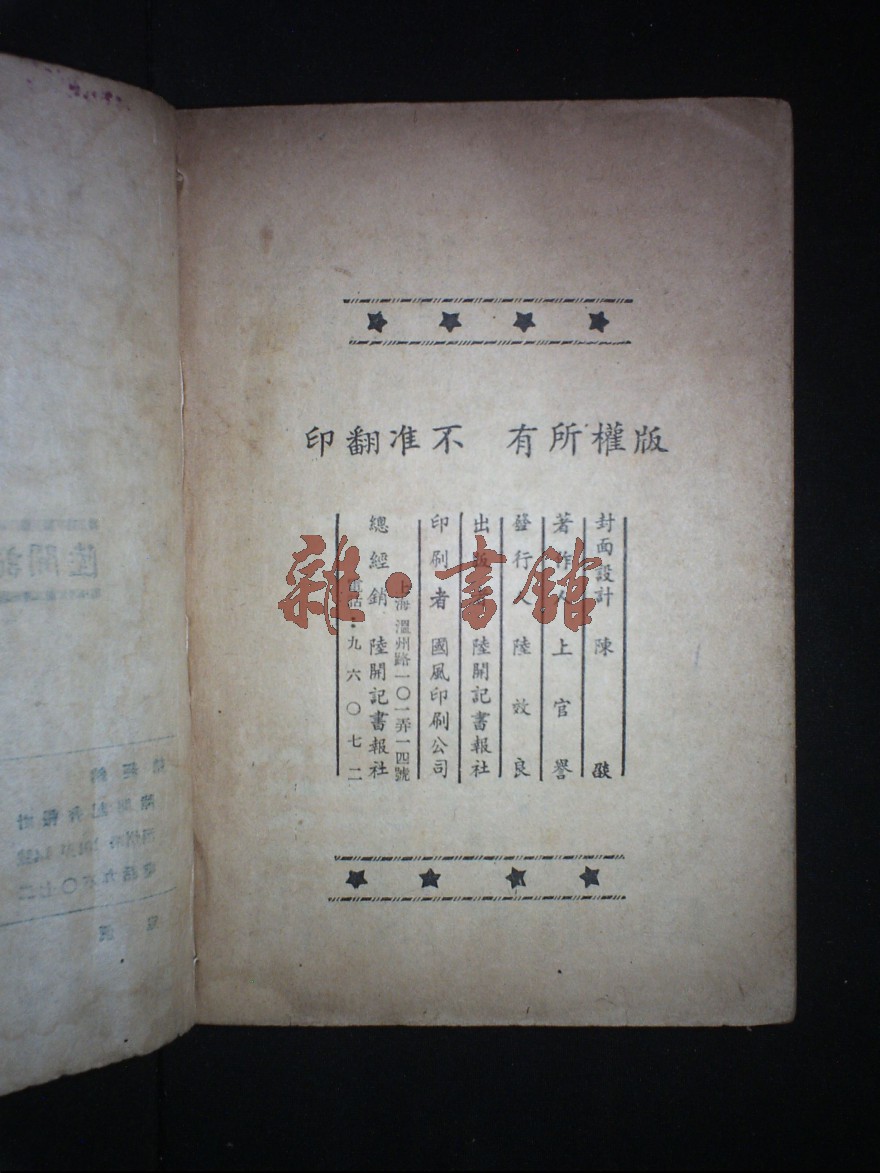 版權所有 不准翻印
封面設計 陳
著作人 上官譽
發行人 陸效良
出版者 陸開記書報社
印刷者 國風印刷公司
上海溫州路一〇一弄一四號
總經銷 陸開記書報社
電話・九六〇七二
雜・書館
陸開記